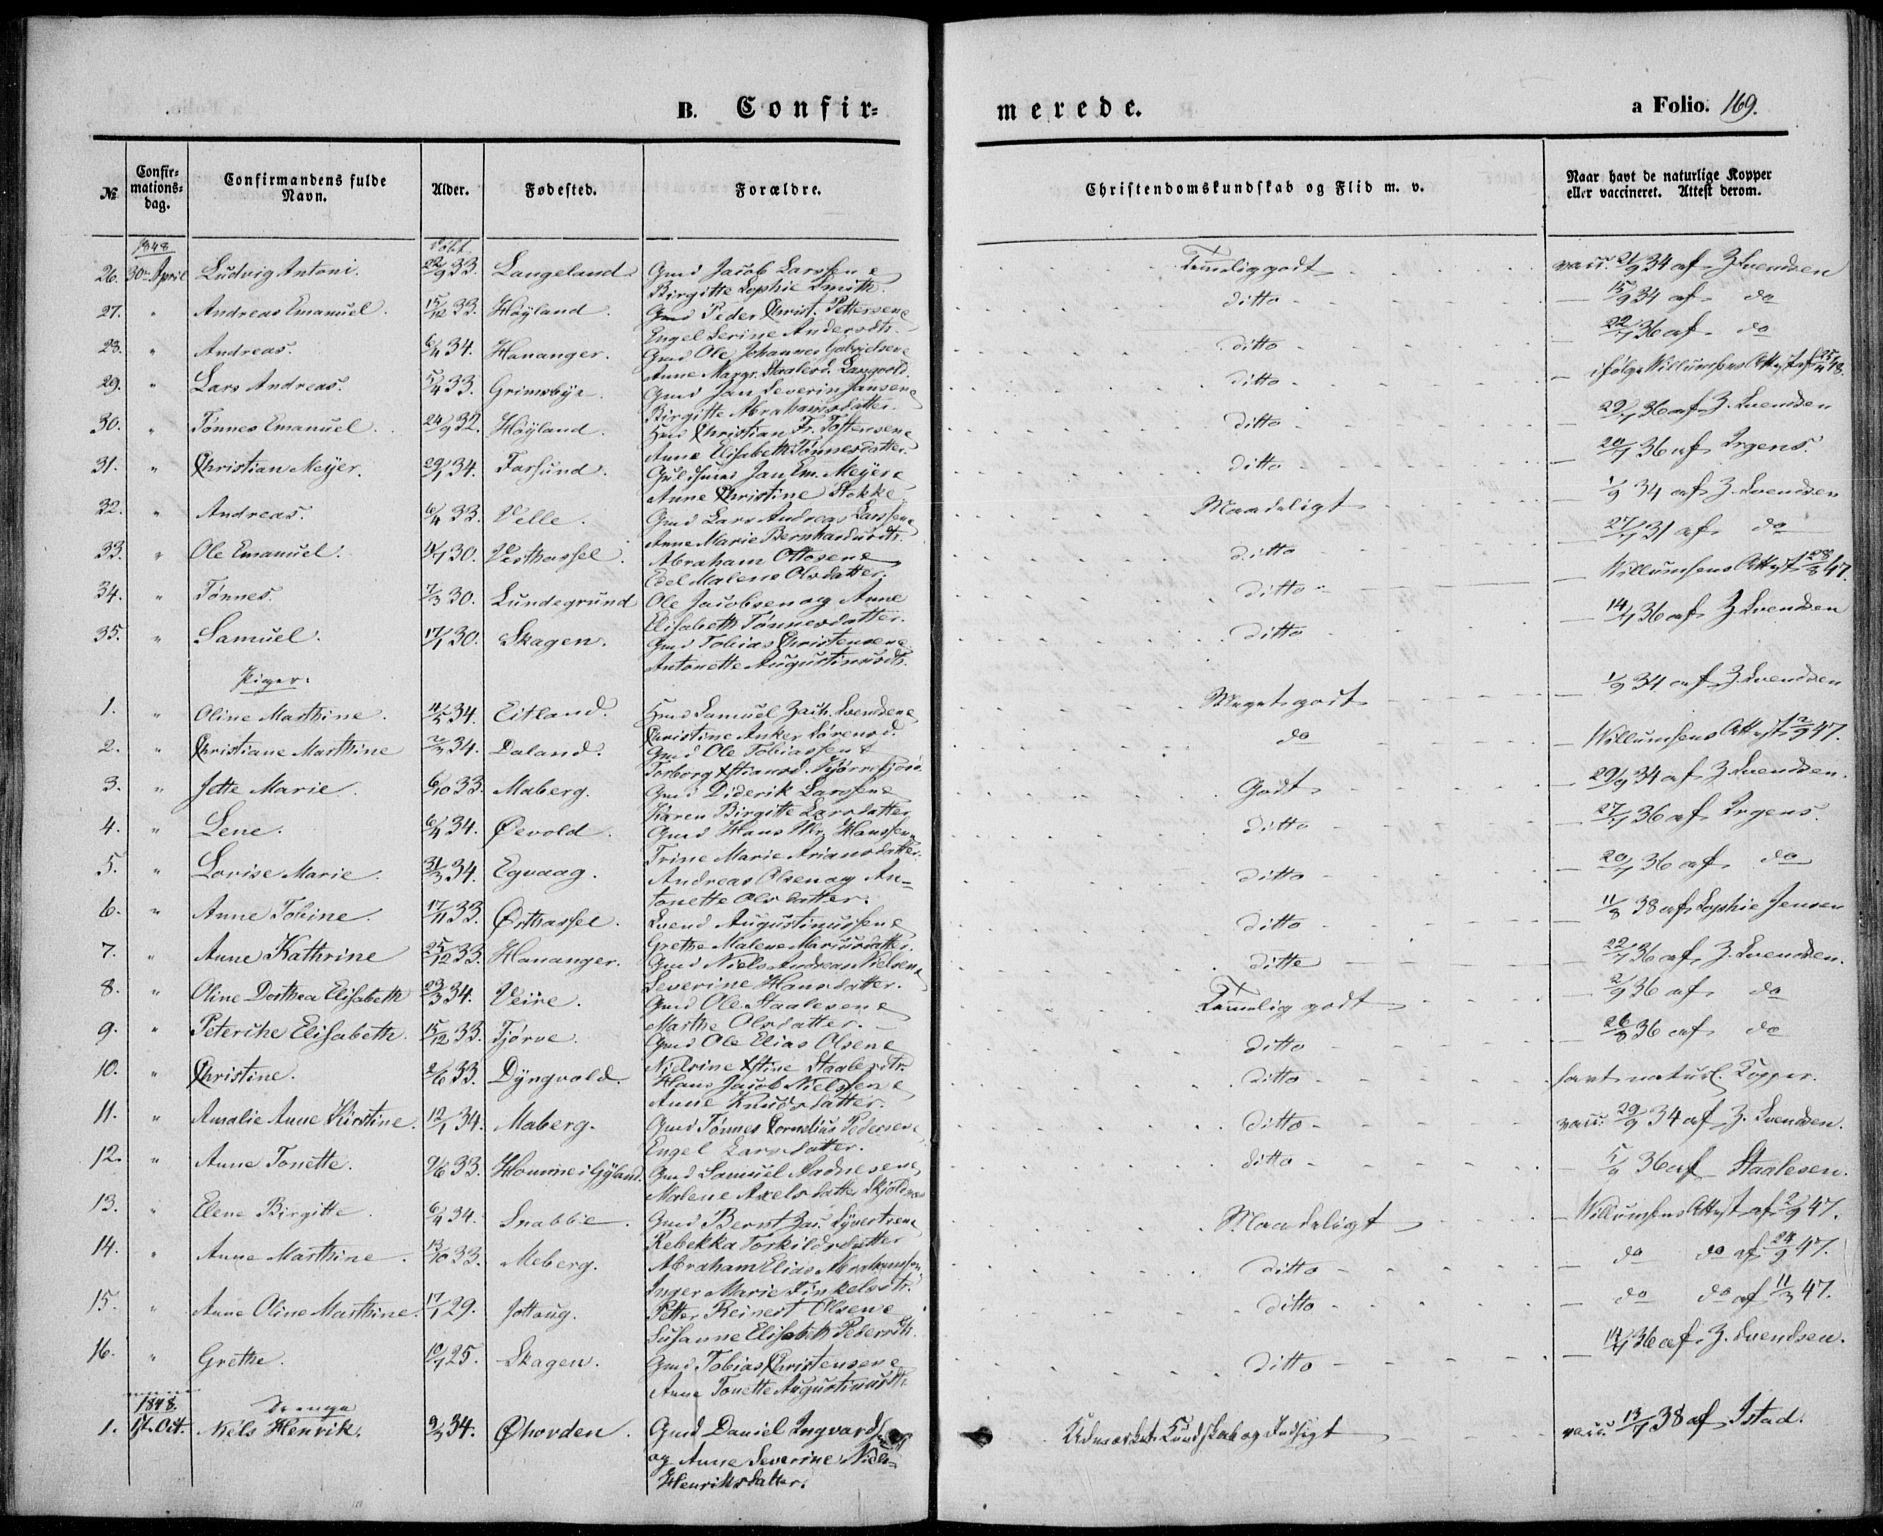 B. Confir=
merede.
a Folio. 169.
№
Confir=
mations=
dag.
Confirmandens fulde
Navn.
Alder.
Fødested.
Forældre.
Christendomskundskab og Flid m. v.
Naar havt de naturlige Kopper
eller vaccineret. Attest derom.
1848 født
26. 30te April Ludvig Antoni. 22/9 33. Langeland Gmd Jacob Larssen & Temmelig godt vacc. 21/9 34 af Z. Svendsen
Birgitte Sophie Smith.
27. " Andreas Emanuel. 15/12 33. Høyland. Gmd Peder Christ. Pettersen & ditto — 15/9 34 af do
Engel Serine Andersdtr.
28. " Andreas. 6/4 34. Hananger. Gmd Ole Johannes Gabrielsen & ditto — 22/7 36 af do
Anne Margr. Staalesd. Langvold.
29. " Lars Andreas. 5/4 33. Grimsbye. Gmd Jan Severin Jansen & ditto — ifølge Willumsens Attest af 25/4 48.
Birgitte Abrahamsdatter.
30. " Tønnes Emanuel. 24/9 32. Høyland. Hmd Christian Fr. Toftensen & ditto — 29/7 36 af Z. Svendsen
Anne Elisabeth Tønnesdatter.
31. " Christian Meyer. 29/1 34. Farsund. Guldsmed Jan Em. Meyer & ditto — 20/7 36 af Irgens.
Anne Christine Stokke.
32. " Andreas. 6/4 33. Velle. Gmd Lars Andreas Larssen & Maadeligt — 1/9 34 af Z. Svendsen
Anne Marie Bernhardsdtr.
33. " Ole Emanuel. 4/1 30. Vesthassel. Abraham Ottosen & ditto — 27/7 31 af do
Edel Malene Olsdatter.
34. " Tønnes. 7/3 30. Lundegrund Ole Jacobsen og Anne ditto — Willumsens Attest 28/8 47.
Elisabeth Tønnesdatter.
35. " Samuel. 17/1 30. Skagen. Gmd Tobias Christensen & ditto — 14/7 36 af Z. Svendsen
Antonette Augustinusdtr.
Piger:
1. " Oline Marthine. 11/5 34. Eitland. Hmd Samuel Zach. Svendsen & Meget godt — 1/9 34 af Z. Svendsen
Christine Anker Sørensd.
2. " Christiane Marthine 2/3 34. Daland. Gmd Ole Tobiassen & do — Willumsens Attest 12/9 47.
3. " Jette Marie. 6/10 33. Maberg. Gmd Diderik Larssen & Godt — 29/9 34 af Z. Svendsen.
Karen Birgitte Larsdatter
4. " Lene. 6/4 34. Øevold. Gmd Hans Hr. Hanssen & ditto — 27/7 36 af Irgens.
Trine Marie Ariansdatter.
5. " Lovise Marie. 31/3 34. Egvaag. Andreas Olsen og An= ditto — 20/7 36 af do
tonette Olsdatter.
6. " Anne Tobine. 17/11 33. Østhassel. Svend Augustinussen & ditto — 11/8 38 af Sophie Jensen
Grethe Malene Mariusdatter.
7. " Anne Kathrine 25/12 33. Hananger. Gmd Niels Andreas Nielsen & ditto — 22/7 36 af Z. Svendsen.
Severine Hansdatter.
8. " Oline Dorthea Elisabeth 23/3 34. Veire. Gmd Ole Staalesen & Temmelig godt — 2/9 36 af do
Marthe Olsdatter.
9. " Peterike Elisabeth. 15/12 33. Tjørve. Gmd Ole Elias Olsen & ditto — 26/8 36 af do
Nielsine Xstine Staalesdtr.
10. " Christine. 2/6 33. Dyngvold. Hans Jacob Nielsen & ditto havt naturl. Kopper.
Anne Knudsdatter.
11. " Amalie Anne Kirstine. 12/1 34. Maberg. Gmd Tønnes Cornelius Pedersen & ditto vacc. 29/9 34 af Z. Svendsen.
Engel Larsdatter.
12. " Anne Tonette. 9/6 33. Houmme i Gyland. Gmd Samuel Aadnesen & ditto — 5/9 36 af Staalesen.
Malene Axelsdatter
13. " Elene Birgitte. 6/4 34. Snabbie. Gmd Bernt Jac. Syvertsen & Maadeligt — Willumsens Attest af 2/9 47.
Rebekka Torkildsdatter
14. " Anne Marthine. 13/10 33. Meberg. Abraham Elias Abrahamsen ditto — do do af 24/9 47.
Inger Marie Finkelsdtr.
15. " Anne Oline Marthine. 17/1 29. Jottaug. Petter Reinert Olsen & ditto — do do af 11/3 47.
Susanne Elisabeth Pedersdtr.
16. " Grethe. 10/7 25. Skagen. Gmd Tobias Christensen & ditto — 14/7 36 af Z. Svendsen.
Anne Tonette Augustinusdtr.
1848 Drenge
1. 1st. Oct. Niels Henrik. 9/3 34. Øhovden. Gmd Daniel Ingvards Udmærket Kundskab og Indsigt vacc. 13/7 38 af Istad.
og Anne Severine Niels
Henriksdatter.